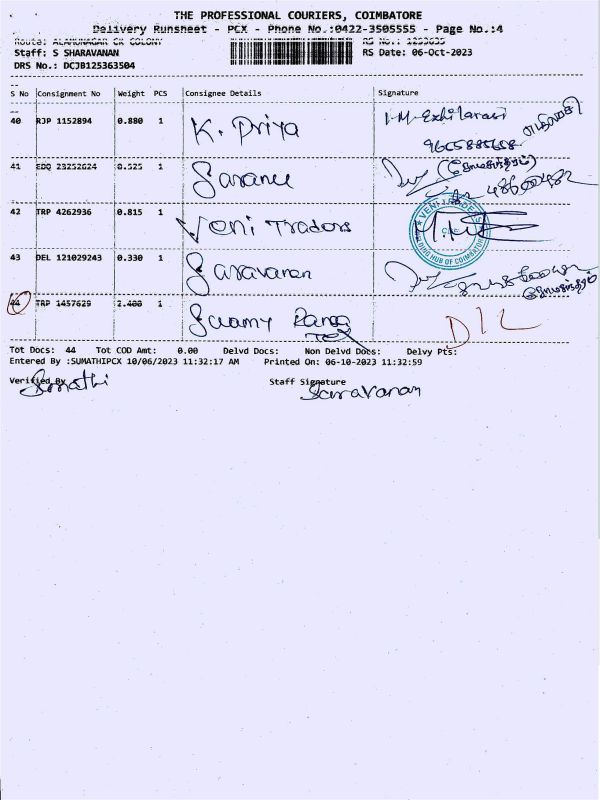 THE PROFESSIONAL COURIERS, COIMBATORE
Delivery Runsheet - PCX - Phone No.:0422-3505555 - Page No.:4
Route: ALAMUNAGAR CK COLONY RS No.: 1253635
Staff: S SHARAVANAN RS Date: 06-Oct-2023
DRS No.: DCJB125363504
S No Consignment No Weight PCS Consignee Details Signature
40 RJP 1152894 0.880 1 K. Priya I.M. Ezhilarasi
41 EDQ 23252624 0.525 1
42 TRP 4262936 0.815 1 Veni Traders
43 DEL 121029243 0.330 1 Saravanan
44 TRP 1457629 2.400 1 Swamy Ranga Tex D/L
Tot Docs: 44 Tot COD Amt: 0.00 Delvd Docs: Non Delvd Docs: Delvy Pts:
Entered By :SUMATHIPCX 10/06/2023 11:32:17 AM Printed On: 06-10-2023 11:32:59
Verified By Sumathi Staff Signature Saravanan